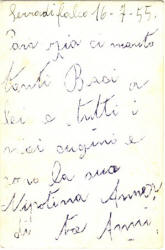 Serradifalco 16-7-55.
Cara zia ci mando
tanti Baci a
lei e tutti i
miei cugini e
sono la sua
Nipotina Anna
di tre Anni